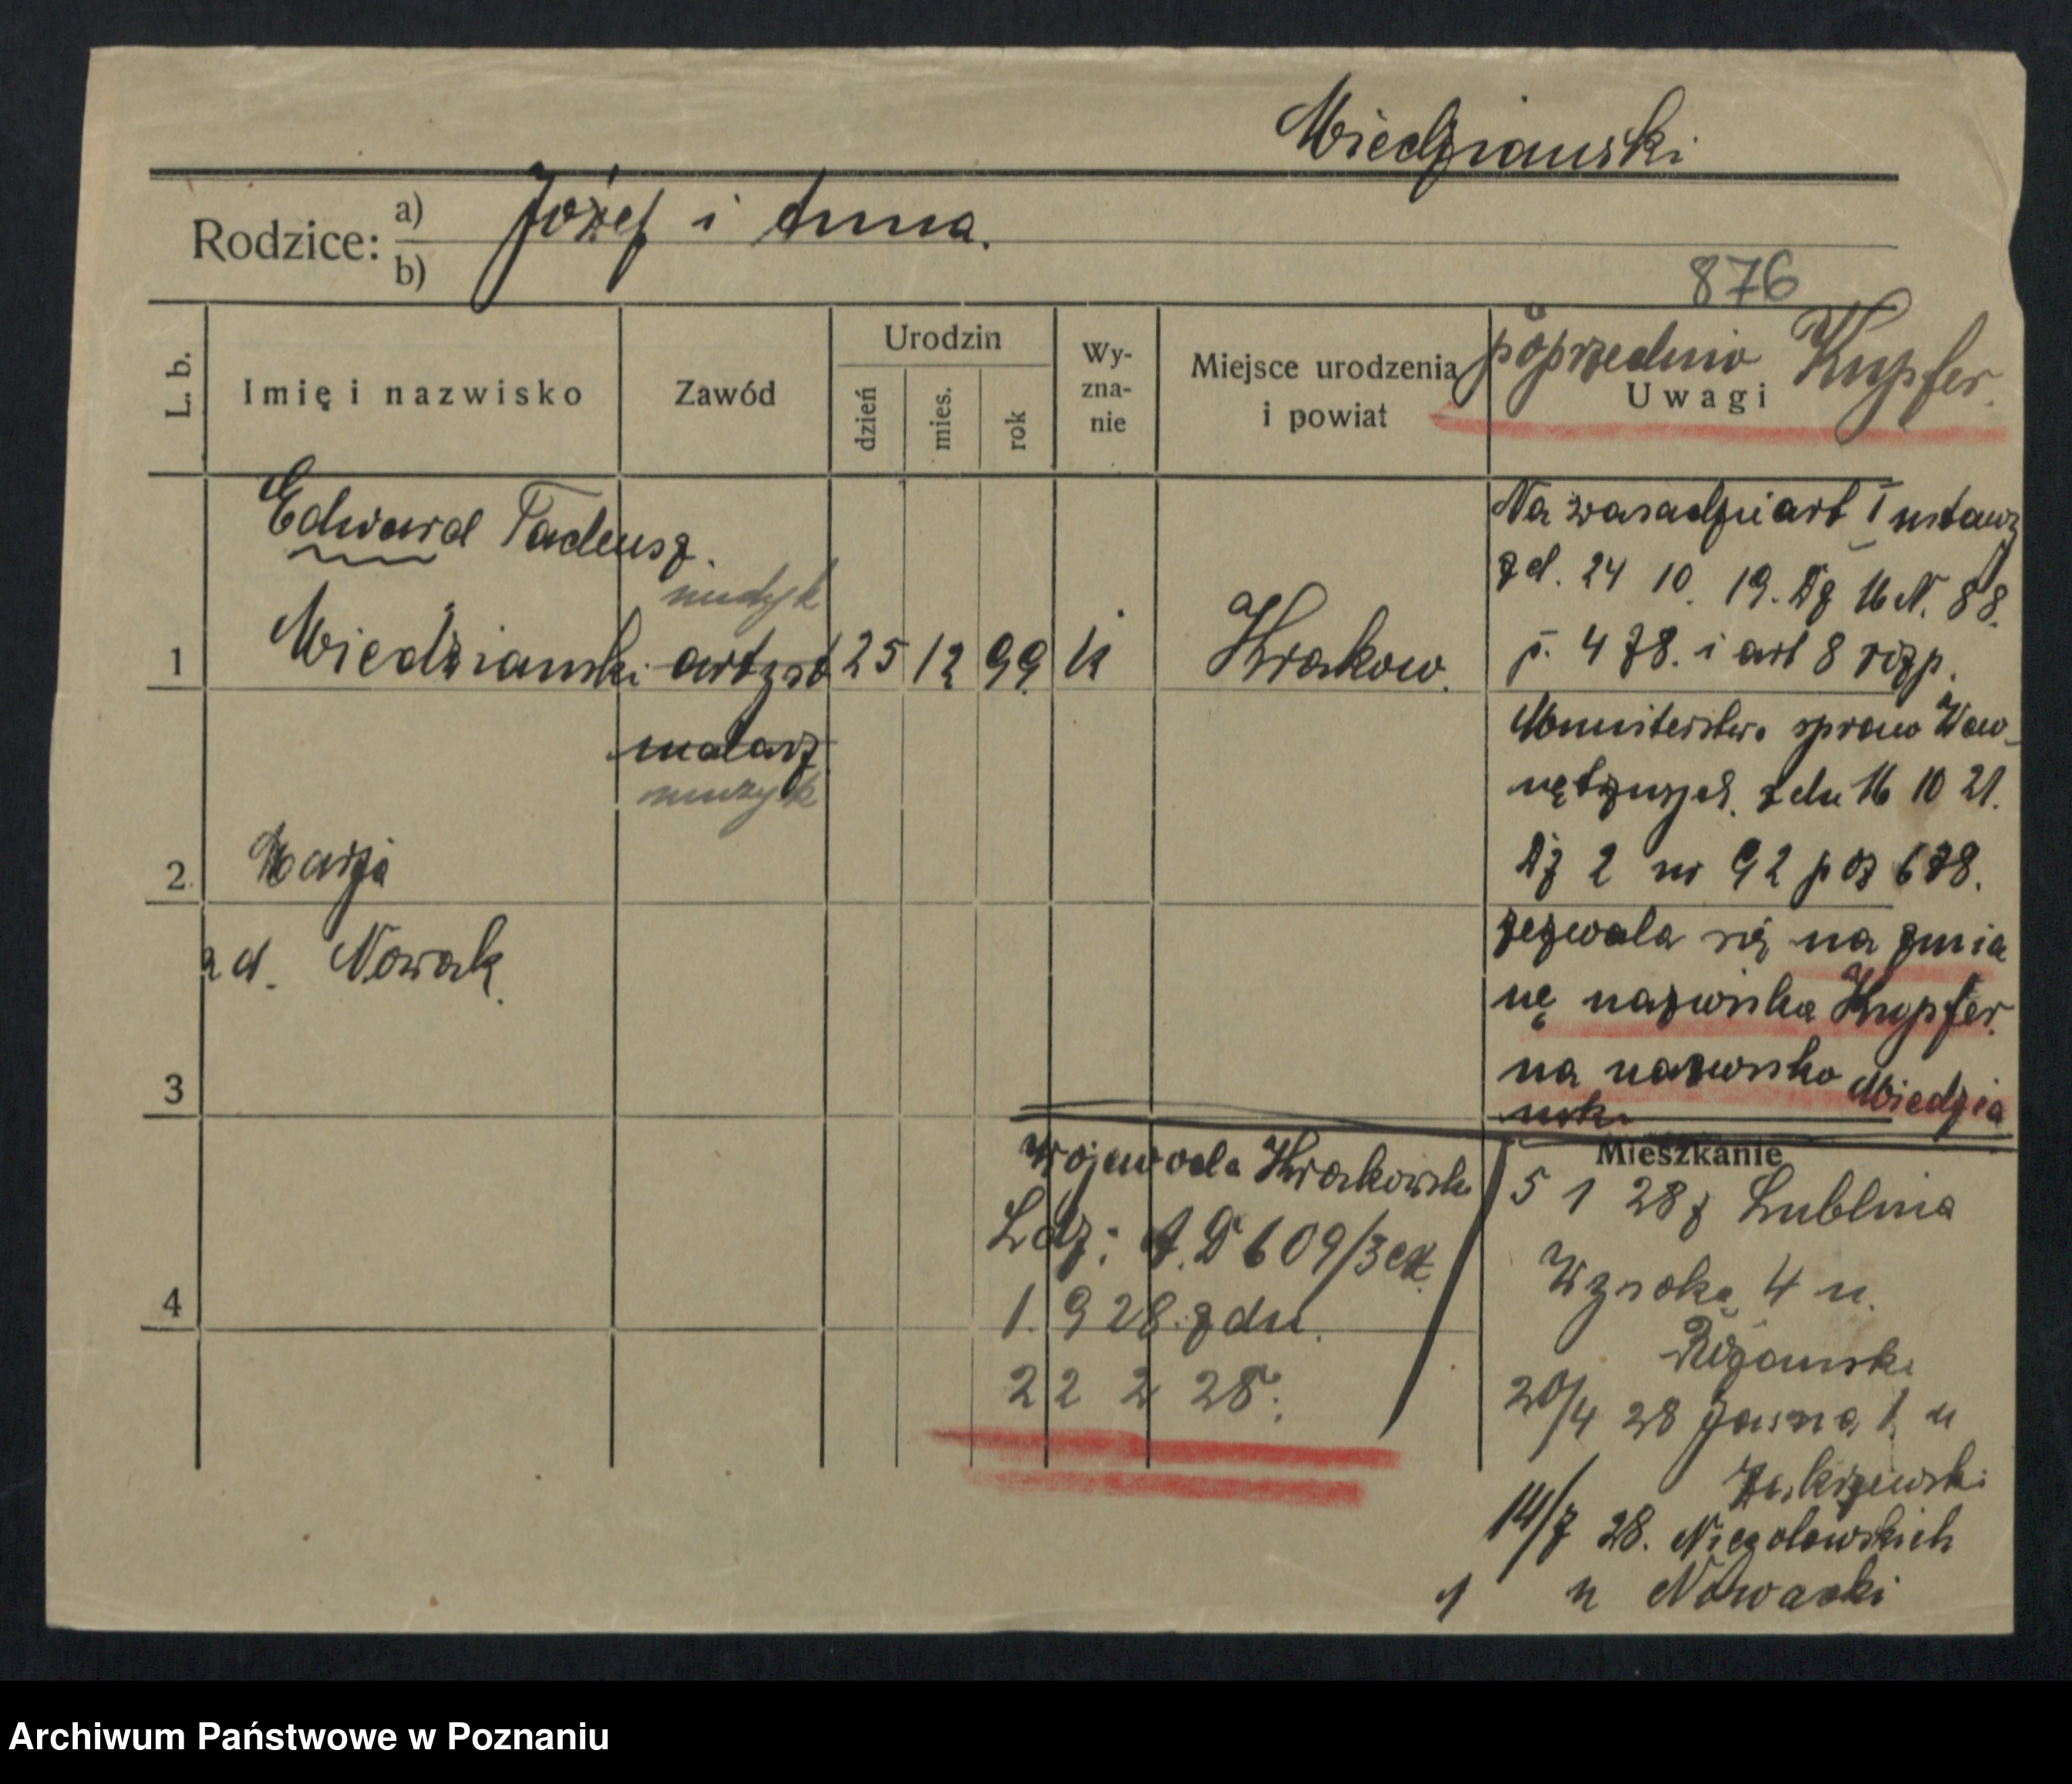 Miedzianski
Rodzice: a) b) Józef i Anna.
876
poprzednio Kupfer.
L. b.
Imię i nazwisko
Zawód
Urodzin
dzień
mies.
rok
Wy-
zna-
nie
Miejsce urodzenia
i powiat
Uwagi
Edward Tadeusz.
1 Miedzianski artyst 25 12 99 k Krakow.
malarz
muzyk
2. Marja
3 Nowak
4
Na zasadzie art 1 ustawy
z d. 24 10. 19. Dz U N. 88.
p. 478. i art 8 rozp.
Ministerstwo spraw Wew-
nętrznych. z dn 16 10 21.
Dz 2 nr 92 poz 678.
zezwala się na zmia
nę nazwiska Kupfer.
na nazwisko Miedzia
nski
Wojewoda Krakowski
Ldz: A. D 609/3
1. 928. z dn.
22 2 28.
Mieszkanie
5 1 28 z Lublina
Wysoka 4 u.
20/4 28 Jasna 1 u
14/7 28. Niegolewskich
1 u Nowacki
Archiwum Państwowe w Poznaniu